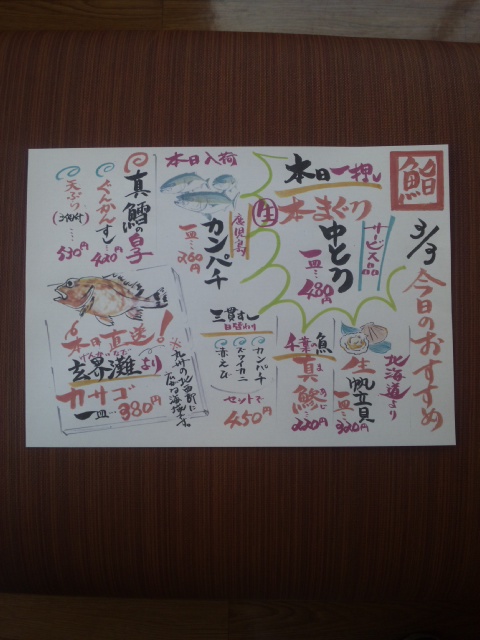 鮨
3/3 今日のおすすめ
本日一押し
生 本まぐろ
サービス品
中とろ
一皿…480円
北海道より
生帆立貝
一皿…320円
千葉の魚
真鯵
まあじ
220円
本日入荷
鹿児島
カンパチ
一皿…260円
三貫すし
日替わり
カンパチ
ズワイカニ
赤えび
セットで
450円
真鱈の白子
ぐんかんすし…420円
天ぷら(2個付)…530円
本日直送!
げんかいなだ
玄界灘より
カサゴ
一皿…380円
※九州の北西部に
広がる海域です。